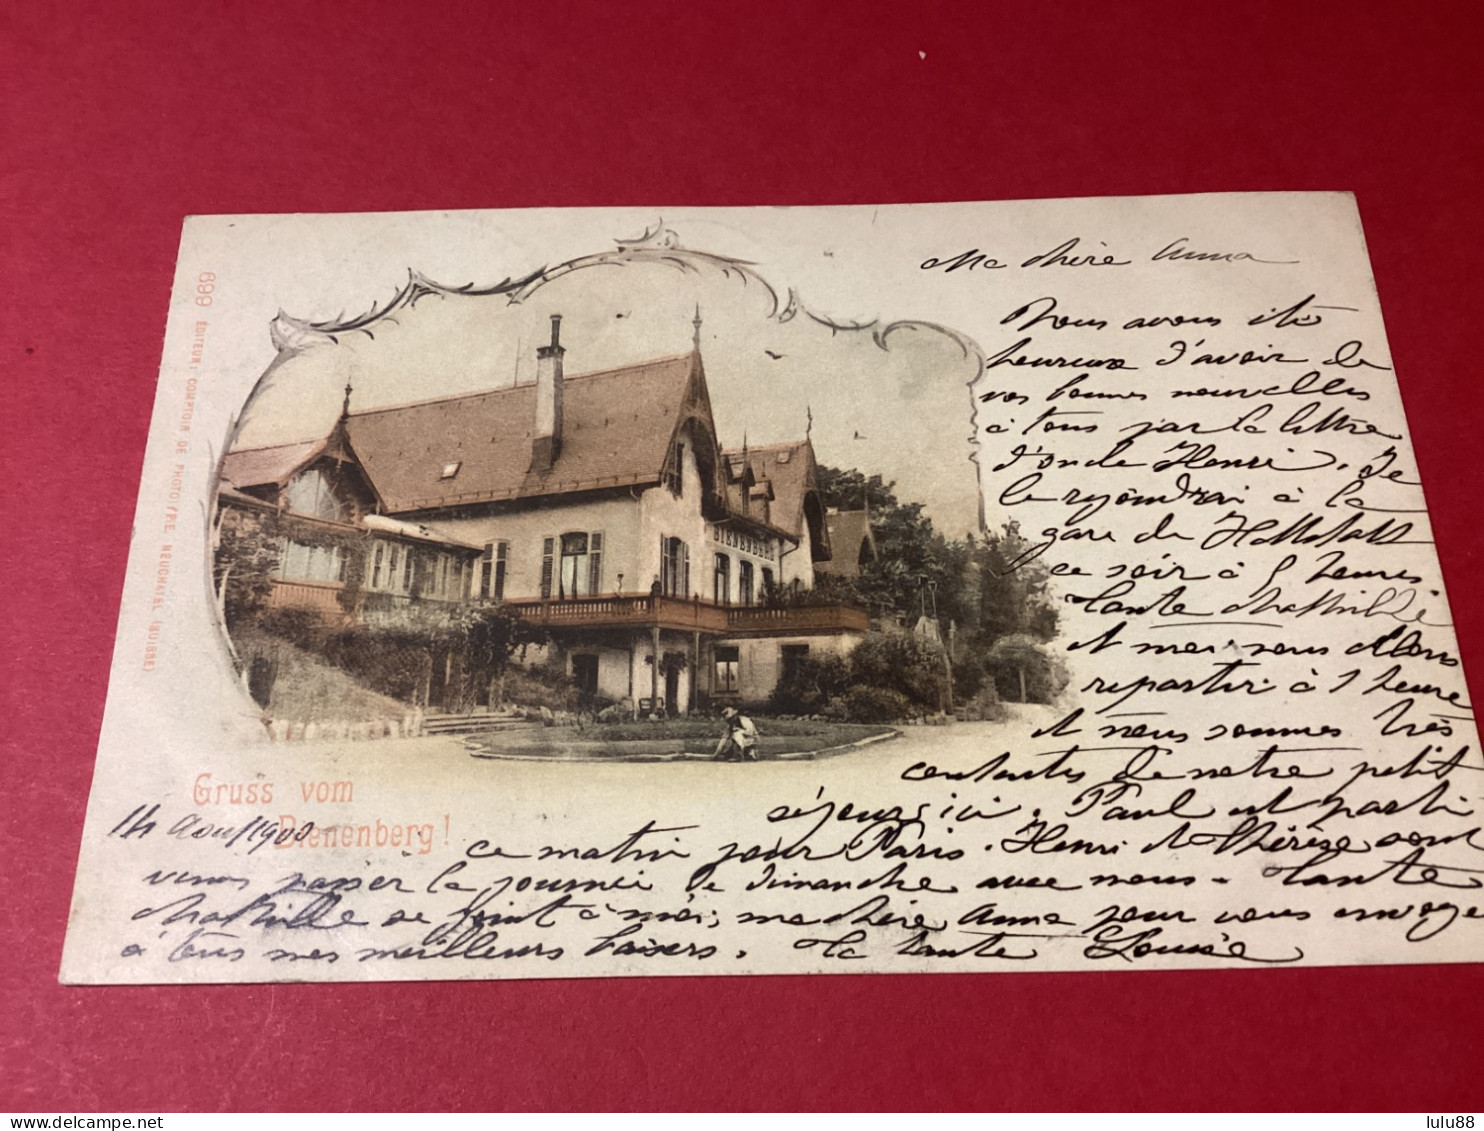 Ma chère Anna
Nous avons été
heureux d'avoir de
vos bonnes nouvelles
à tous par la lettre
d'oncle Henri. Je
le rejoindrai à la
gare de
ce soir à 5 heures
tante Mathilde
et moi nous allons
repartir à 1 heure
et nous sommes très
contentes de notre petit
séjour ici. Paul est parti
ce matin pour Paris. Henri et Thérèse sont
venus passer la journée de dimanche avec nous. Tante
Mathilde se joint à moi, ma chère Anna pour vous envoyer
à tous mes meilleurs baisers. Ta tante Louise
14 Aout 1900
Gruss vom
Bienenberg!
BIENENBERG
699 ÉDITEUR: COMPTOIR DE PHOTOTYPIE, NEUCHATEL (SUISSE)
www.delcampe.net
lulu88